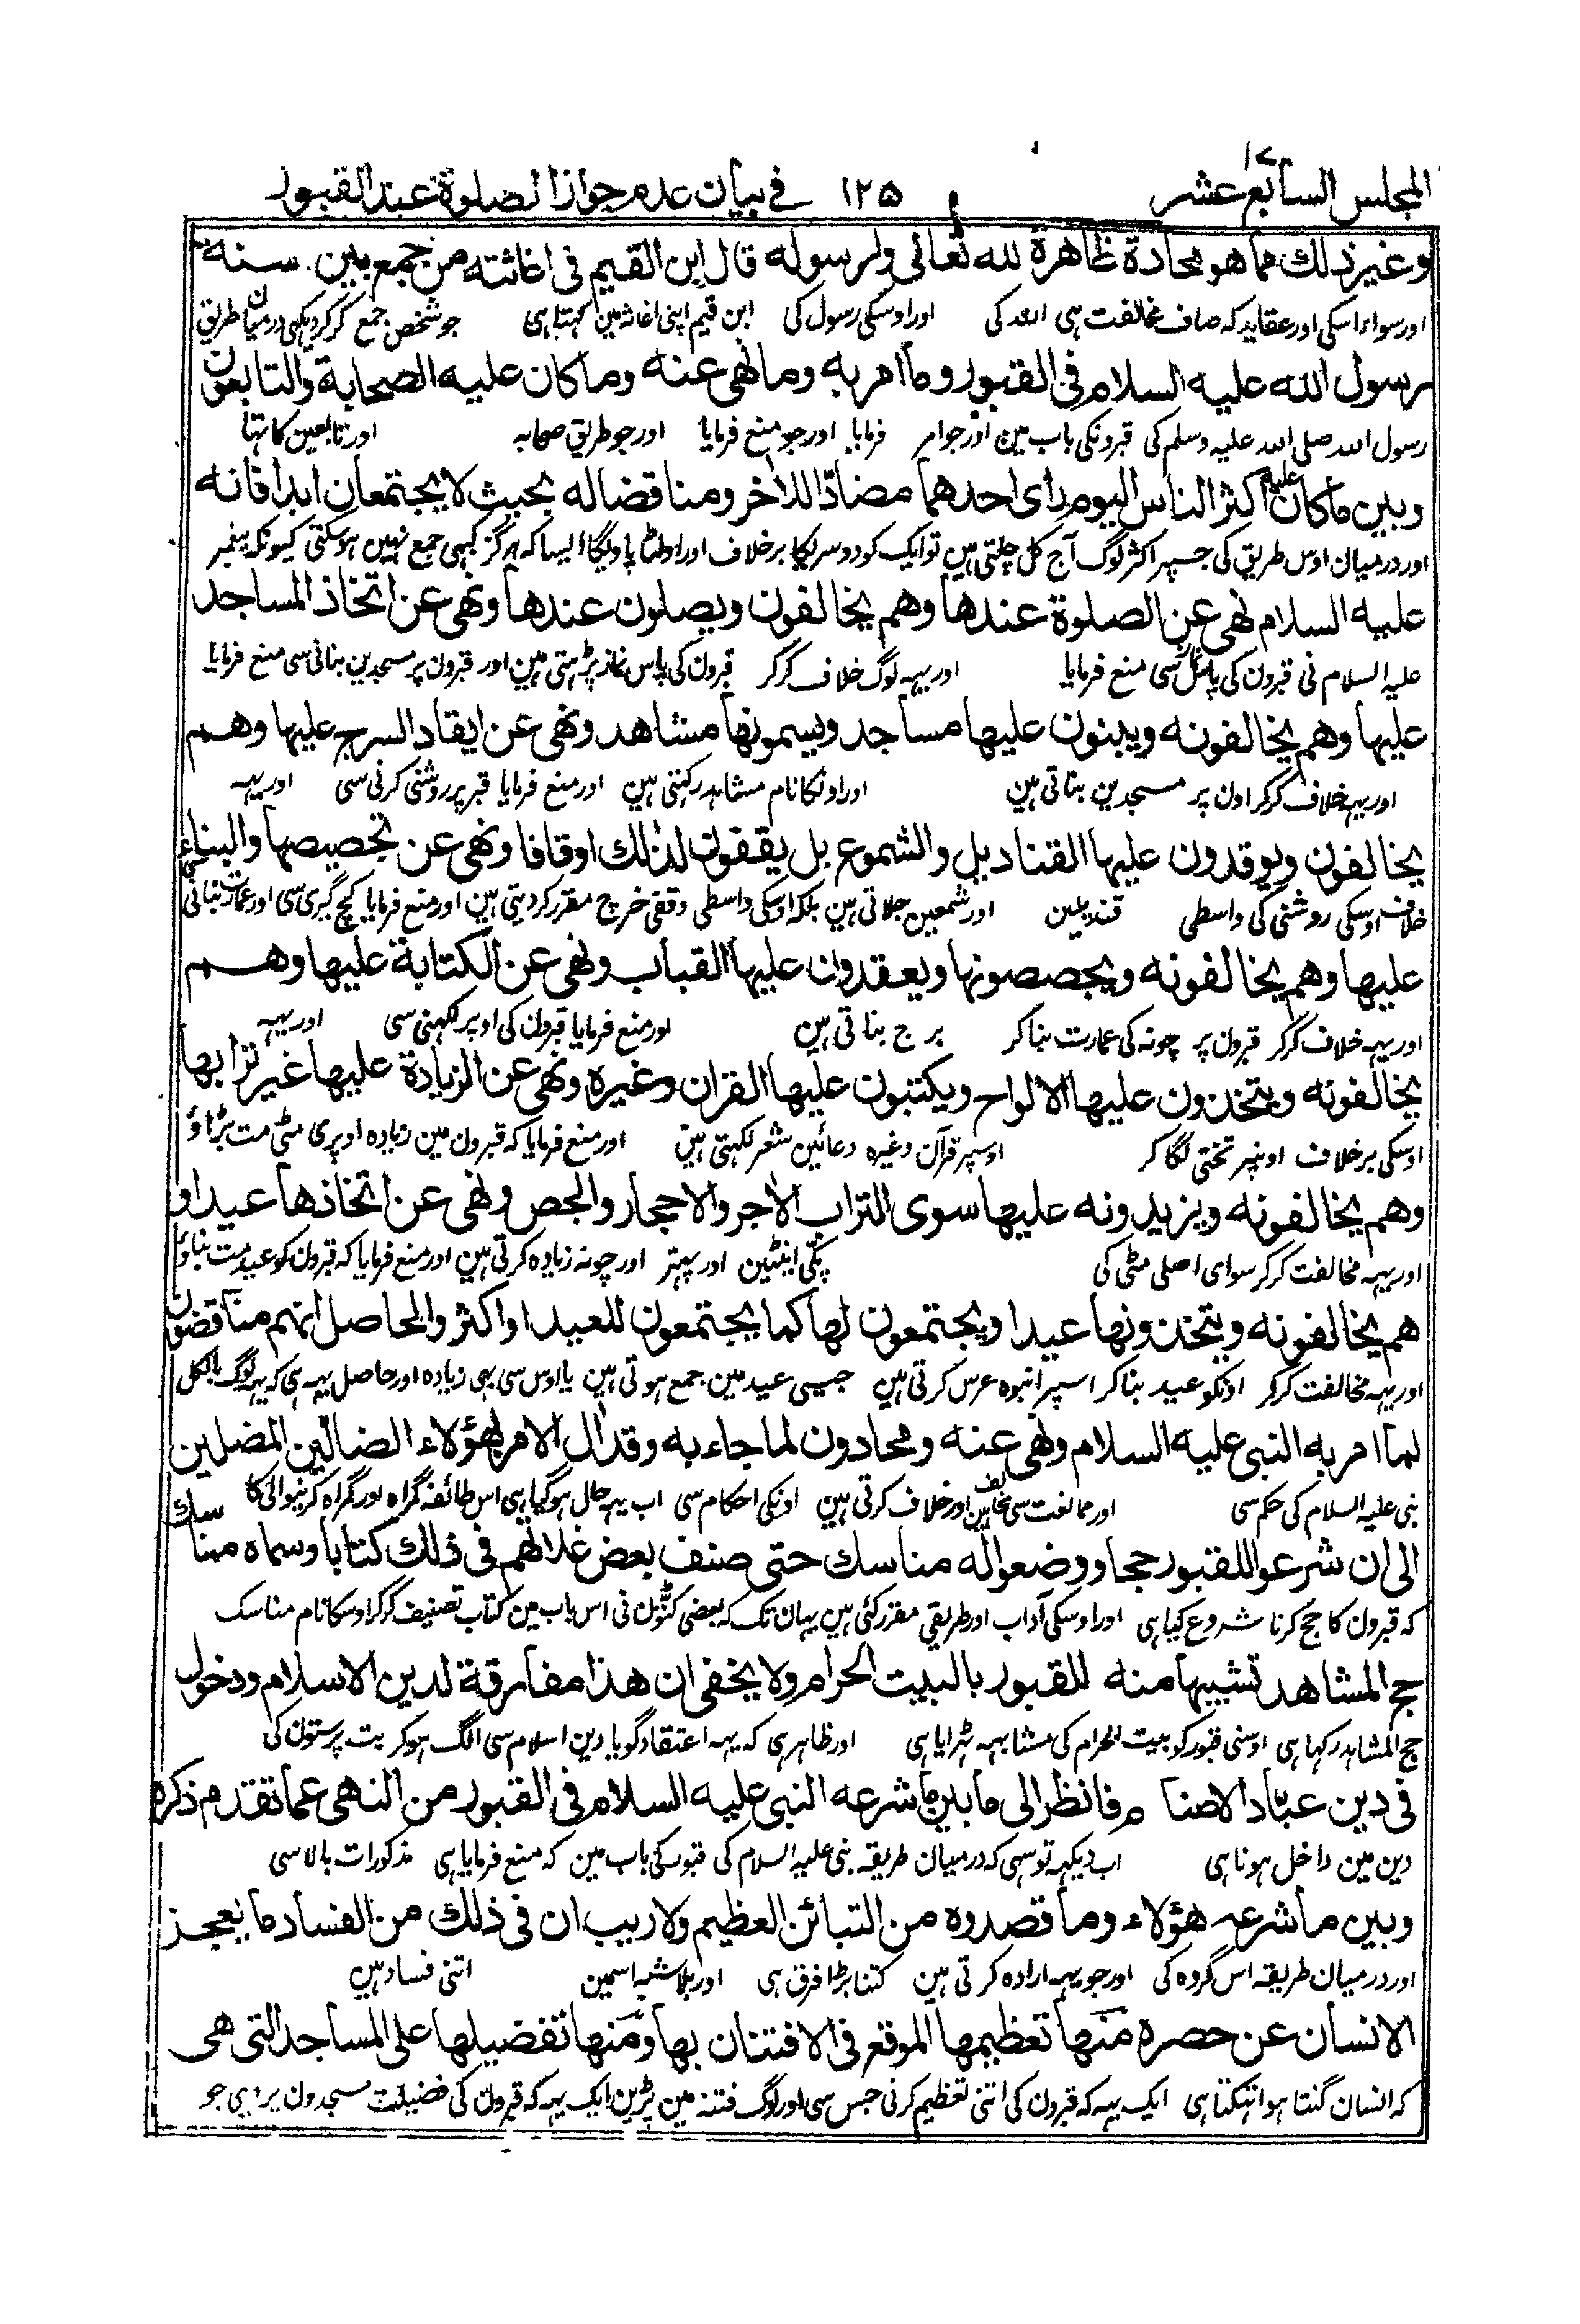 ١٧
المجلس السابع عشر ١٢٥ في بيان عدم جواز الصلوة عند القبور
وغير ذلك مما هو محادة ظاهرة لله تعالى ولرسوله قال ابن القيم فى اغاثته من جمع بين سنة
اور سواء اسکی اور عقاید کہ صاف مخالفت ہی اللہ کی اور اوسکی رسول کی ابن قیم اپنی اغاثہ مین کہتا ہی جو شخص جمع کر کر دیکہی درمیان طریق
رسول الله عليه السلام فى القبور وما امر به وما نهى عنه وما كان عليه الصحابة والتابعون
رسول اللہ صلی اللہ علیہ وسلم کی قبرونکی باب مین اور جو امر فرمایا اور جو منع فرمایا اور جو طریق صحابہ اور تابعین کا تہا
وبين ما كان عليه اكثر الناس اليوم راى احدهما مضادّا للاٰخر ومناقضا له بحيث لا يجتمعان ابدا فانه
اور درمیان اوس طریق کی جسپر اکثر لوگ آج کل چلتی ہین تو ایک کو دوسریکا برخلاف اور اولٹا پاویگا ایسا کہ ہرگز کبہی جمع نہین ہوسکتی کیونکہ پیغمبر
عليه السلام نهى عن الصلوة عندها وهم يخالفون ويصلون عندها ونهى عن اتخاذ المساجد
علیہ السلام نی قبرون کی پاس نماز سی منع فرمایا اور یہہ لوگ خلاف کر کر قبرون کی پاس نماز پڑہتی ہین اور قبرون پر مسجدین بنانی سی منع فرمایا
عليها وهم يخالفونه ويبنون عليها مساجد ويسمونها مشاهد ونهى عن ايقاد السرج عليها وهم
اور یہہ خلاف کر کر اون پر مسجدین بناتی ہین اور اونکا نام مشاہد رکہتی ہین اور منع فرمایا قبر پر روشنی کرنی سی اور یہہ
يخالفون ويوقدون عليها القناديل والشموع بل يقفون لذلك اوقافا ونهى عن تجصيصها والبناء
خلاف اوسکی روشنی کی واسطی قندیلین اور شمعین جلاتی ہین بلکہ اوسکی واسطی وقفی خرچ مقرر کردیتی ہین اور منع فرمایا گچ گیری سی اور عمارت بنانی سی
عليها وهم يخالفونه ويجصصونها ويعقدون عليها القباب ونهى عن الكتابة عليها وهم
اور یہہ خلاف کر کر قبرون پر چونہ کی عمارت بنا کر برج بناتی ہین اور منع فرمایا قبرون کی اوپر لکہنی سی اور یہہ
يخالفونه ويتخذون عليها الالواح ويكتبون عليها القران وغيره ونهى عن الزيادة عليها غير ترابها
اوسکی برخلاف اونپر تختی لگا کر اوسپر قرآن وغیرہ دعائین شعر لکہتی ہین اور منع فرمایا کہ قبرون مین زیادہ اوپری مٹی مت بڑاؤ
وهم يخالفونه ويزيدونه عليها سوى التراب الاٰجر والاحجار والجص ونهى عن اتخاذها عيدا و
اور یہہ مخالفت کر کر سوای اصلی مٹی کی پکّی اینٹین اور پتہر اور چونہ زیادہ کرتی ہین اور منع فرمایا کہ قبرون کو عید مت بناؤ
هم يخالفونه ويتخذونها عيدا ويجتمعون لها كما يجتمعون للعيد او اكثر والحاصل انهم مناقضون
اور یہہ مخالفت کر کر اونکو عید بنا کر اسپر انبوہ عرس کرتی ہین جیسی عید مین جمع ہوتی ہین یا اوس سی بہی زیادہ اور حاصل یہہ ہی کہ یہہ لوگ بالکل
لما امر به النبى عليه السلام ونهى عنه ومحادون لما جاء به وقد اٰل الامر لهؤلاء الضالّين المضلين
نبی علیہ السلام کی حکم سی اور ممانعت سی مخالف ہین اور خلاف کرتی ہین اونکی احکام سی اب یہہ حال ہوگیا ہی اس طائفہ گمراہ اور گمراہ کرنیوالی کا
الى ان شرعوا للقبور حجا ووضعوا له مناسك حتى صنف بعض غلاتهم فى ذلك كتابا وسماه مناسك
کہ قبرون کا حج کرنا شروع کیا ہی اور اوسکی آداب اور طریقی مقرر کئی ہین یہان تک کہ بعضی کٹّون نی اس باب مین کتاب تصنیف کر کر اوسکا نام مناسک
حج المشاهد تشبيها منه للقبور بالبيت الحرام ولا يخفى ان هذا مفارقة لدين الاسلام ودخول
حج المشاہد رکہا ہی اوسنی قبور کو بیت الحرام کی مشابہہ ٹہرایا ہی اور ظاہر ہی کہ یہہ اعتقاد گویا دین اسلام سی الگ ہو کر بت پرستون کی
فى دين عبّاد الاصنام فانظر الى ما بين ما شرعه النبى عليه السلام فى القبور من النهى عما تقدم ذكره
دین مین داخل ہونا ہی اب دیکہہ تو سہی کہ درمیان طریقہ نبی علیہ السلام کی قبور کی باب مین کہ منع فرمایا ہی مذکورات بالا سی
وبين ما شرعه هؤلاء وما قصدوه من التبائن العظيم ولا ريب ان فى ذلك من الفساد ما يعجز
اور درمیان طریقہ اس گروہ کی اور جو یہہ ارادہ کرتی ہین کتنا بڑا فرق ہی اور بلا شبہ اسمین اتنی فساد ہین
الانسان عن حصره منها تعظيمها الموقع فى الافتتان بها ومنها تفضيلها على المساجد التى هى
کہ انسان گنتا ہوا تہکتا ہی ایک یہہ کہ قبرون کی اتنی تعظیم کرنی جس سی اور لوگ فتنہ مین پڑین ایک یہہ کہ قبرون کی فضیلت مسجدون پر دیی جو